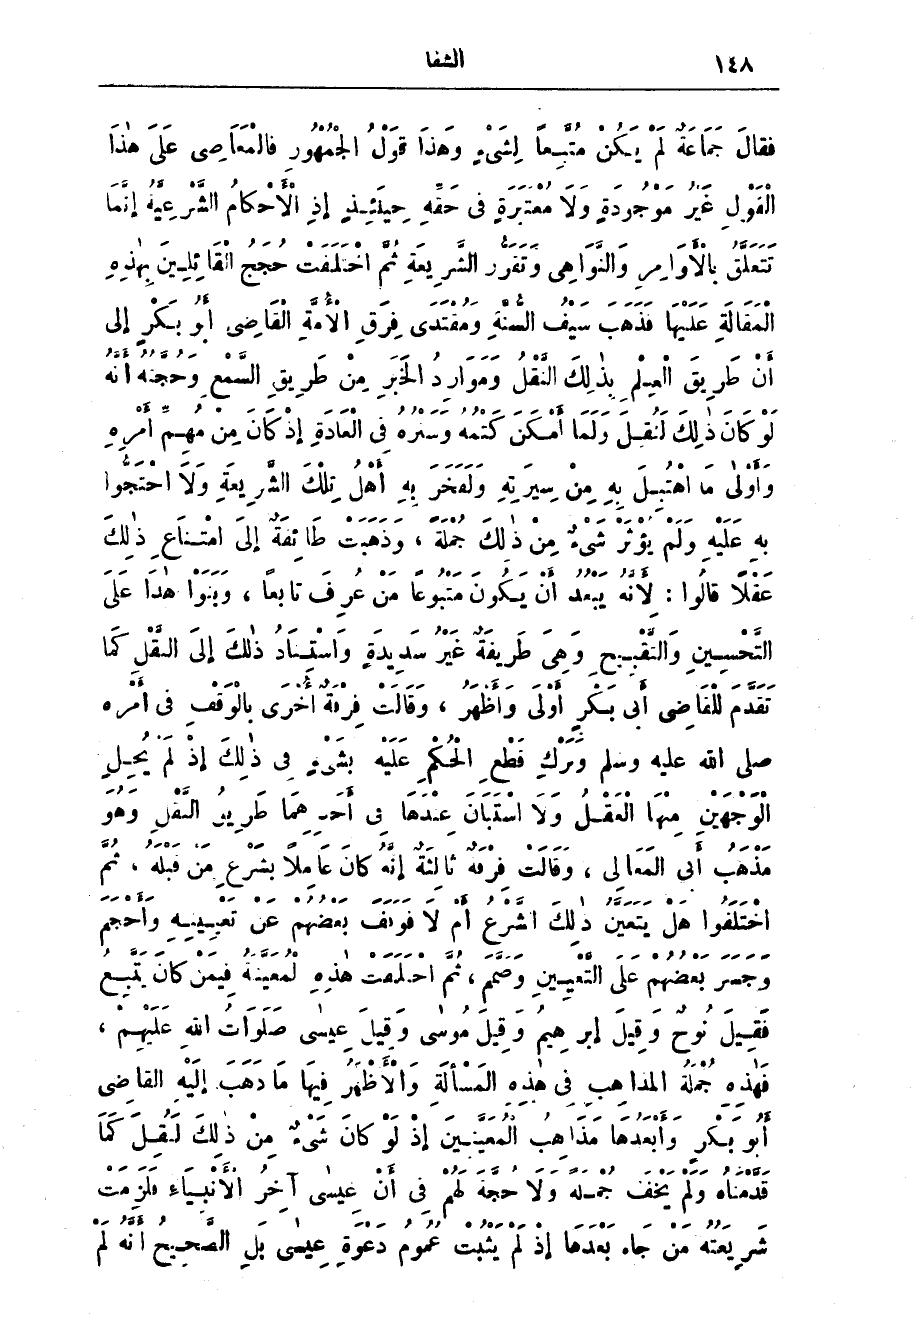 ١٤٨
الشفا
فَقَالَ جَمَاعَةٌ لَمْ يَكُنْ مُتَّبِعاً لِشَىْءٍ وَهَذَا قَوْلُ الْجُمْهُورِ فَالْمَعَاصِى عَلَى هٰذَا
الْقَوْلِ غَيْرُ مَوْجُودَةٍ وَلَا مُعْتَبَرَةٍ فى حَقِّهِ حِينَئِذٍ إِذِ الْأَحْكَامُ الشَّرْعِيَّةُ إِنَّمَا
تَتَعَلَّقُ بِالْأَوَامِرِ وَالنَّوَاهِى وَتَقَرُّرِ الشَّرِيعَةِ ثُمَّ اخْتَلَفَتْ حُجَجُ الْقَائِلِينَ بِهٰذِهِ
الْمَقَالَةِ عَلَيْهَا فَذَهَبَ سَيْفُ السُّنَّةِ وَمُقْتَدَى فِرَقِ الْأُمَّةِ الْقَاضِى أَبُو بَكْرٍ إِلَى
أَنَّ طَرِيقَ الْعِلْمِ بِذٰلِكَ النَّقْلُ وَمَوَارِدُ الْخَبَرِ مِنْ طَرِيقِ السَّمْعِ وَحُجَّتُهُ أَنَّهُ
لَوْ كَانَ ذٰلِكَ لَنُقِلَ وَلَمَا أَمْكَنَ كَتْمُهُ وَسَتْرُهُ فِى الْعَادَةِ إِذْ كَانَ مِنْ مُهِمِّ أَمْرِهِ
وَأَوْلَى مَا اهْتُبِلَ بِهِ مِنْ سِيرَتِهِ وَلَفَخَرَ بِهِ أَهْلُ تِلْكَ الشَّرِيعَةِ وَلَا احْتَجُّوا
بِهِ عَلَيْهِ وَلَمْ يُؤْثَرْ شَىْءٌ مِنْ ذٰلِكَ جُمْلَةً ، وَذَهَبَتْ طَائِفَةٌ إِلَى امْتِنَاعِ ذٰلِكَ
عَقْلًا قَالُوا : لِأَنَّهُ يَبْعُدُ أَنْ يَكُونَ مَتْبُوعاً مَنْ عُرِفَ تَابِعاً ، وَبَنَوْا هٰذَا عَلَى
التَّحْسِينِ وَالتَّقْبِيحِ وَهِىَ طَرِيقَةٌ غَيْرُ سَدِيدَةٍ وَاسْتِنَادُ ذٰلِكَ إِلَى النَّقْلِ كَمَا
تَقَدَّمَ لِلْقَاضِى أَبِى بَكْرٍ أَوْلَى وَأَظْهَرُ ، وَقَالَتْ فِرْقَةٌ أُخْرَى بِالْوَقْفِ فى أَمْرِهِ
صلى الله عليه وسلم وَتَرْكِ قَطْعِ الْحُكْمِ عَلَيْهِ بِشَىْءٍ فِى ذٰلِكَ إِذْ لَمْ يُحِلِ
الْوَجْهَيْنِ مِنْهَا الْعَقْلُ وَلَا اسْتَبَانَ عِنْدَهَا فِى أَحَدِهِمَا طَرِيقُ النَّقْلِ وَهُوَ
مَذْهَبُ أَبِى الْمَعَالِى ، وَقَالَتْ فِرْقَةٌ ثَالِثَةٌ إِنَّهُ كَانَ عَامِلًا بِشَرْعِ مَنْ قَبْلَهُ ، ثُمَّ
اخْتَلَفُوا هَلْ يَتَعَيَّنُ ذٰلِكَ الشَّرْعُ أَمْ لَا فَوَقَفَ بَعْضُهُمْ عَنْ تَعْيِينِهِ وَأَحْجَمَ
وَجَسَرَ بَعْضُهُمْ عَلَى التَّعْيِينِ وَصَمَّمَ ، ثُمَّ اخْتَلَفَتْ هٰذِهِ الْمُعَيِّنَةُ فِيمَنْ كَانَ يَتَّبِعُ
فَقِيلَ نُوحٌ وَقِيلَ إِبرهِيمُ وَقِيلَ مُوسٰى وَقِيلَ عِيسٰى صَلَوَاتُ اللهِ عَلَيْهِمْ ،
فَهٰذِهِ جُمْلَةُ الْمَذَاهِبِ فِى هٰذِهِ الْمَسْأَلَةِ وَالْأَظْهَرُ فِيهَا مَا ذَهَبَ إِلَيْهِ الْقَاضِى
أَبُو بَكْرٍ وَأَبْعَدُهَا مَذَاهِبُ الْمُعَيِّنِينَ إِذْ لَوْ كَانَ شَىْءٌ مِنْ ذٰلِكَ لَنُقِلَ كَمَا
قَدَّمْنَاهُ وَلَمْ يَخْفَ جُمْلَةً وَلَا حُجَّةَ لَهُمْ فِى أَنَّ عِيسٰى آخِرُ الْأَنْبِيَاءِ فَلَزِمَتْ
شَرِيعَتُهُ مَنْ جَاءَ بَعْدَهَا إِذْ لَمْ يَثْبُتْ عُمُومُ دَعْوَةِ عِيسٰى بَلِ الصَّحِيحُ أَنَّهُ لَمْ